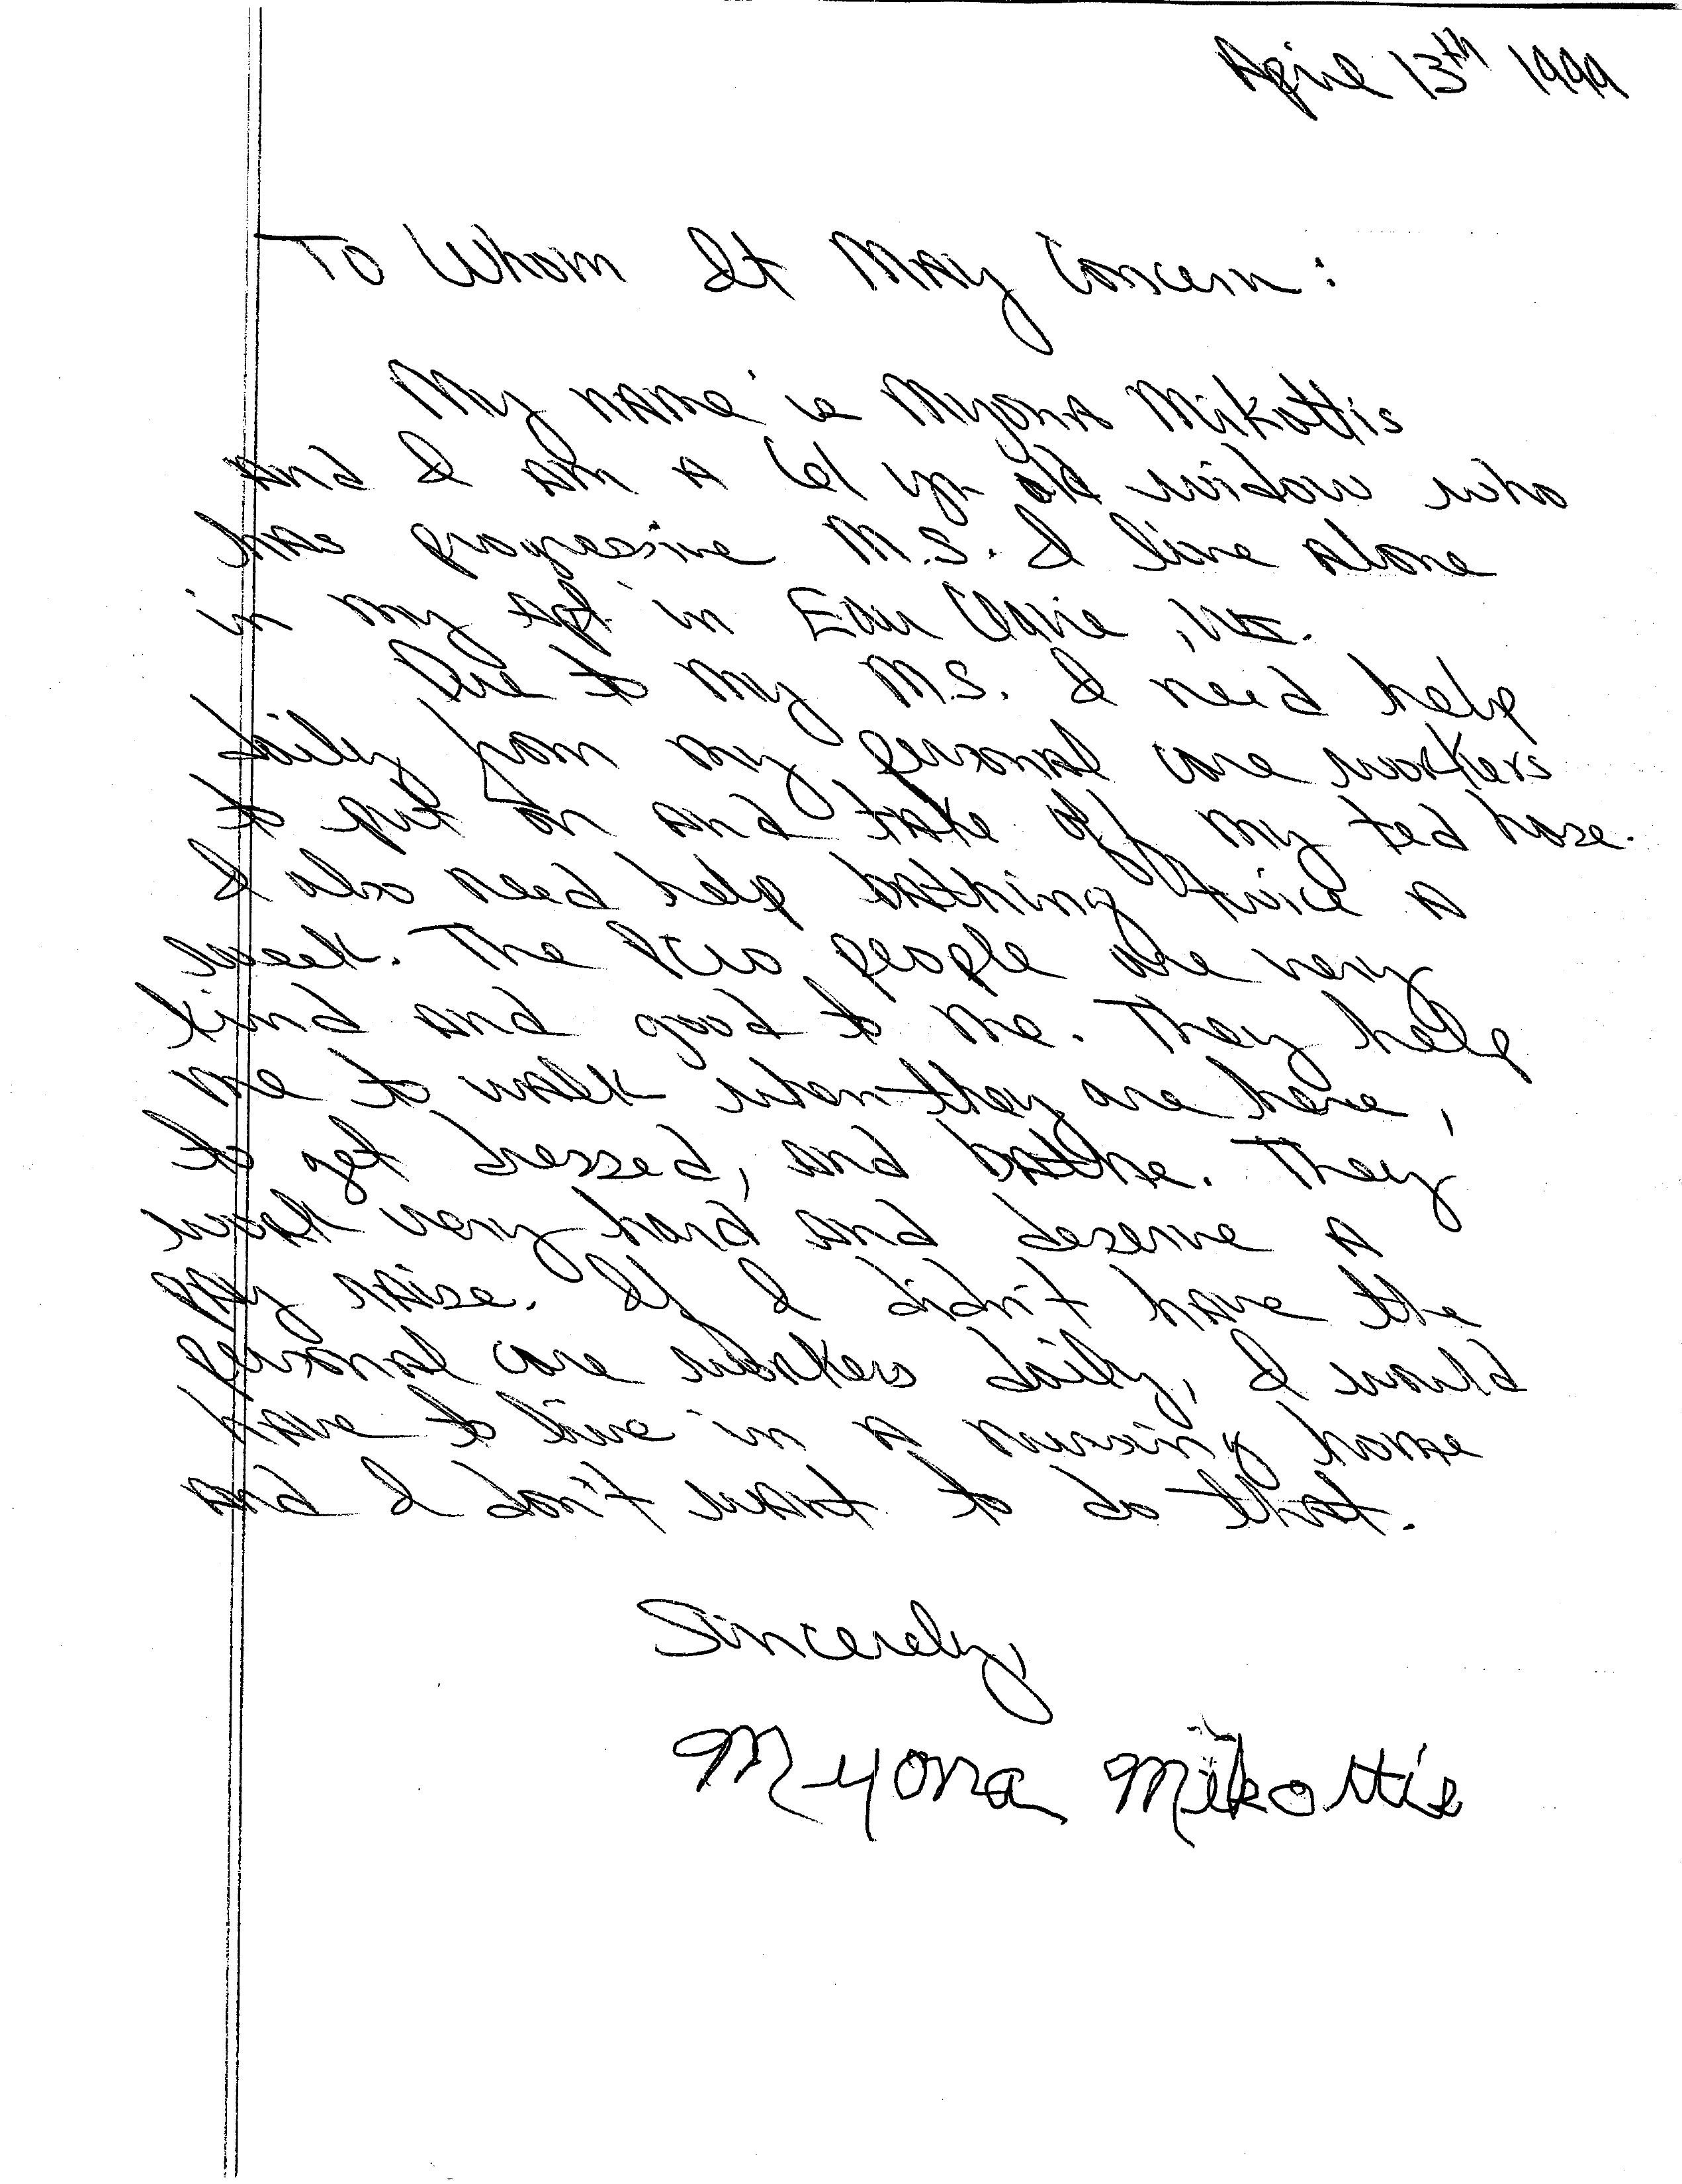 April 13th 1999
To Whom It May Concern:
My name is Myona Mikottis
and I am a 61 yr old widow who
has progressive M.S. I live alone
in my apt in Eau Claire, WI.
Due to my M.S. I need help
daily from my personal care workers
to put on and take off my ted hose.
I also need help bathing twice a
week. The PCW people are very
kind and good to me. They help
me to walk when they are here,
to get dressed, and bathe. They
work very hard and deserve a
pay raise. If I didn't have the
personal care workers daily, I would
have to live in a nursing home
and I don't want to do that.
Sincerely,
Myona Mikottis